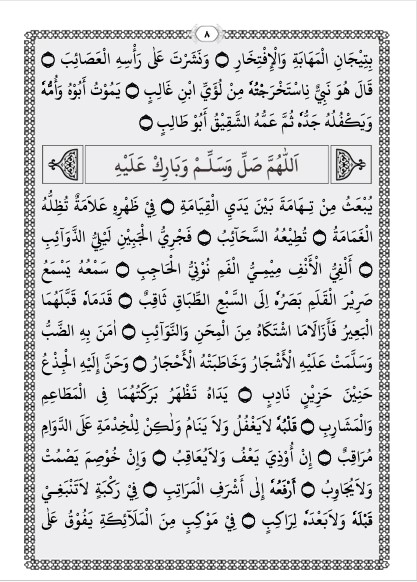 ٨
بِتِيْجَانِ الْمَهَابَةِ وَالْإِفْتِخَارِ ۞ وَنَشَرْتَ عَلٰى رَأْسِهِ الْعَصَائِبَ ۞
قَالَ هُوَ نَبِيٌّ نِاسْتَخْرَجْتُهُ مِنْ لُؤَيِّ ابْنِ غَالِبٍ ۞ يَمُوْتُ أَبُوْهُ وَأُمُّهُ
وَيَكْفُلُهُ جَدُّهُ ثُمَّ عَمُّهُ الشَّقِيْقُ أَبُوْ طَالِبٍ ۞
اَللّٰهُمَّ صَلِّ وَسَلِّمْ وَبَارِكْ عَلَيْهِ
يُبْعَثُ مِنْ تِهَامَةَ بَيْنَ يَدَيِ الْقِيَامَةِ ۞ فِيْ ظَهْرِهِ عَلَامَةٌ تُظِلُّهُ
الْغَمَامَةُ ۞ تُطِيْعُهُ السَّحَائِبُ ۞ فَجْرِيُّ الْجَبِيْنِ لَيْلِيُّ الذَّوَآئِبِ
۞ أَلْفِيُّ الْأَنْفِ مِيْمِيُّ الْفَمِ نُوْنِيُّ الْحَاجِبِ ۞ سَمْعُهُ يَسْمَعُ
صَرِيْرَ الْقَلَمِ بَصَرُهُ اِلَى السَّبْعِ الطِّبَاقِ ثَاقِبٌ ۞ قَدَمَاهُ قَبَّلَهُمَا
الْبَعِيْرُ فَأَزَالَامَا اشْتَكَاهُ مِنَ الْمِحَنِ وَالنَّوَآئِبِ ۞ اٰمَنَ بِهِ الضَّبُّ
وَسَلَّمَتْ عَلَيْهِ الْأَشْجَارُ وَخَاطَبَتْهُ الْأَحْجَارُ ۞ وَحَنَّ إِلَيْهِ الْجِذْعُ
حَنِيْنَ حَزِيْنٍ نَادِبٍ ۞ يَدَاهُ تَظْهَرُ بَرَكَتُهُمَا فِى الْمَطَاعِمِ
وَالْمَشَارِبِ ۞ قَلْبُهُ لَايَغْفُلُ وَلَا يَنَامُ وَلٰكِنْ لِلْخِدْمَةِ عَلَى الدَّوَامِ
مُرَاقِبٌ ۞ إِنْ أُوْذِيَ يَعْفُ وَلَايُعَاقِبُ ۞ وَإِنْ خُوْصِمَ يَصْمُتْ
وَلَايُجَاوِبُ ۞ أَرْفَعُهُ إِلٰى أَشْرَفِ الْمَرَاتِبِ ۞ فِيْ رَكْبَةٍ لَاتَنْبَغِيْ
قَبْلَهُ وَلَابَعْدَهُ لِرَاكِبٍ ۞ فِيْ مَوْكِبٍ مِنَ الْمَلَآئِكَةِ يَفُوْقُ عَلٰى